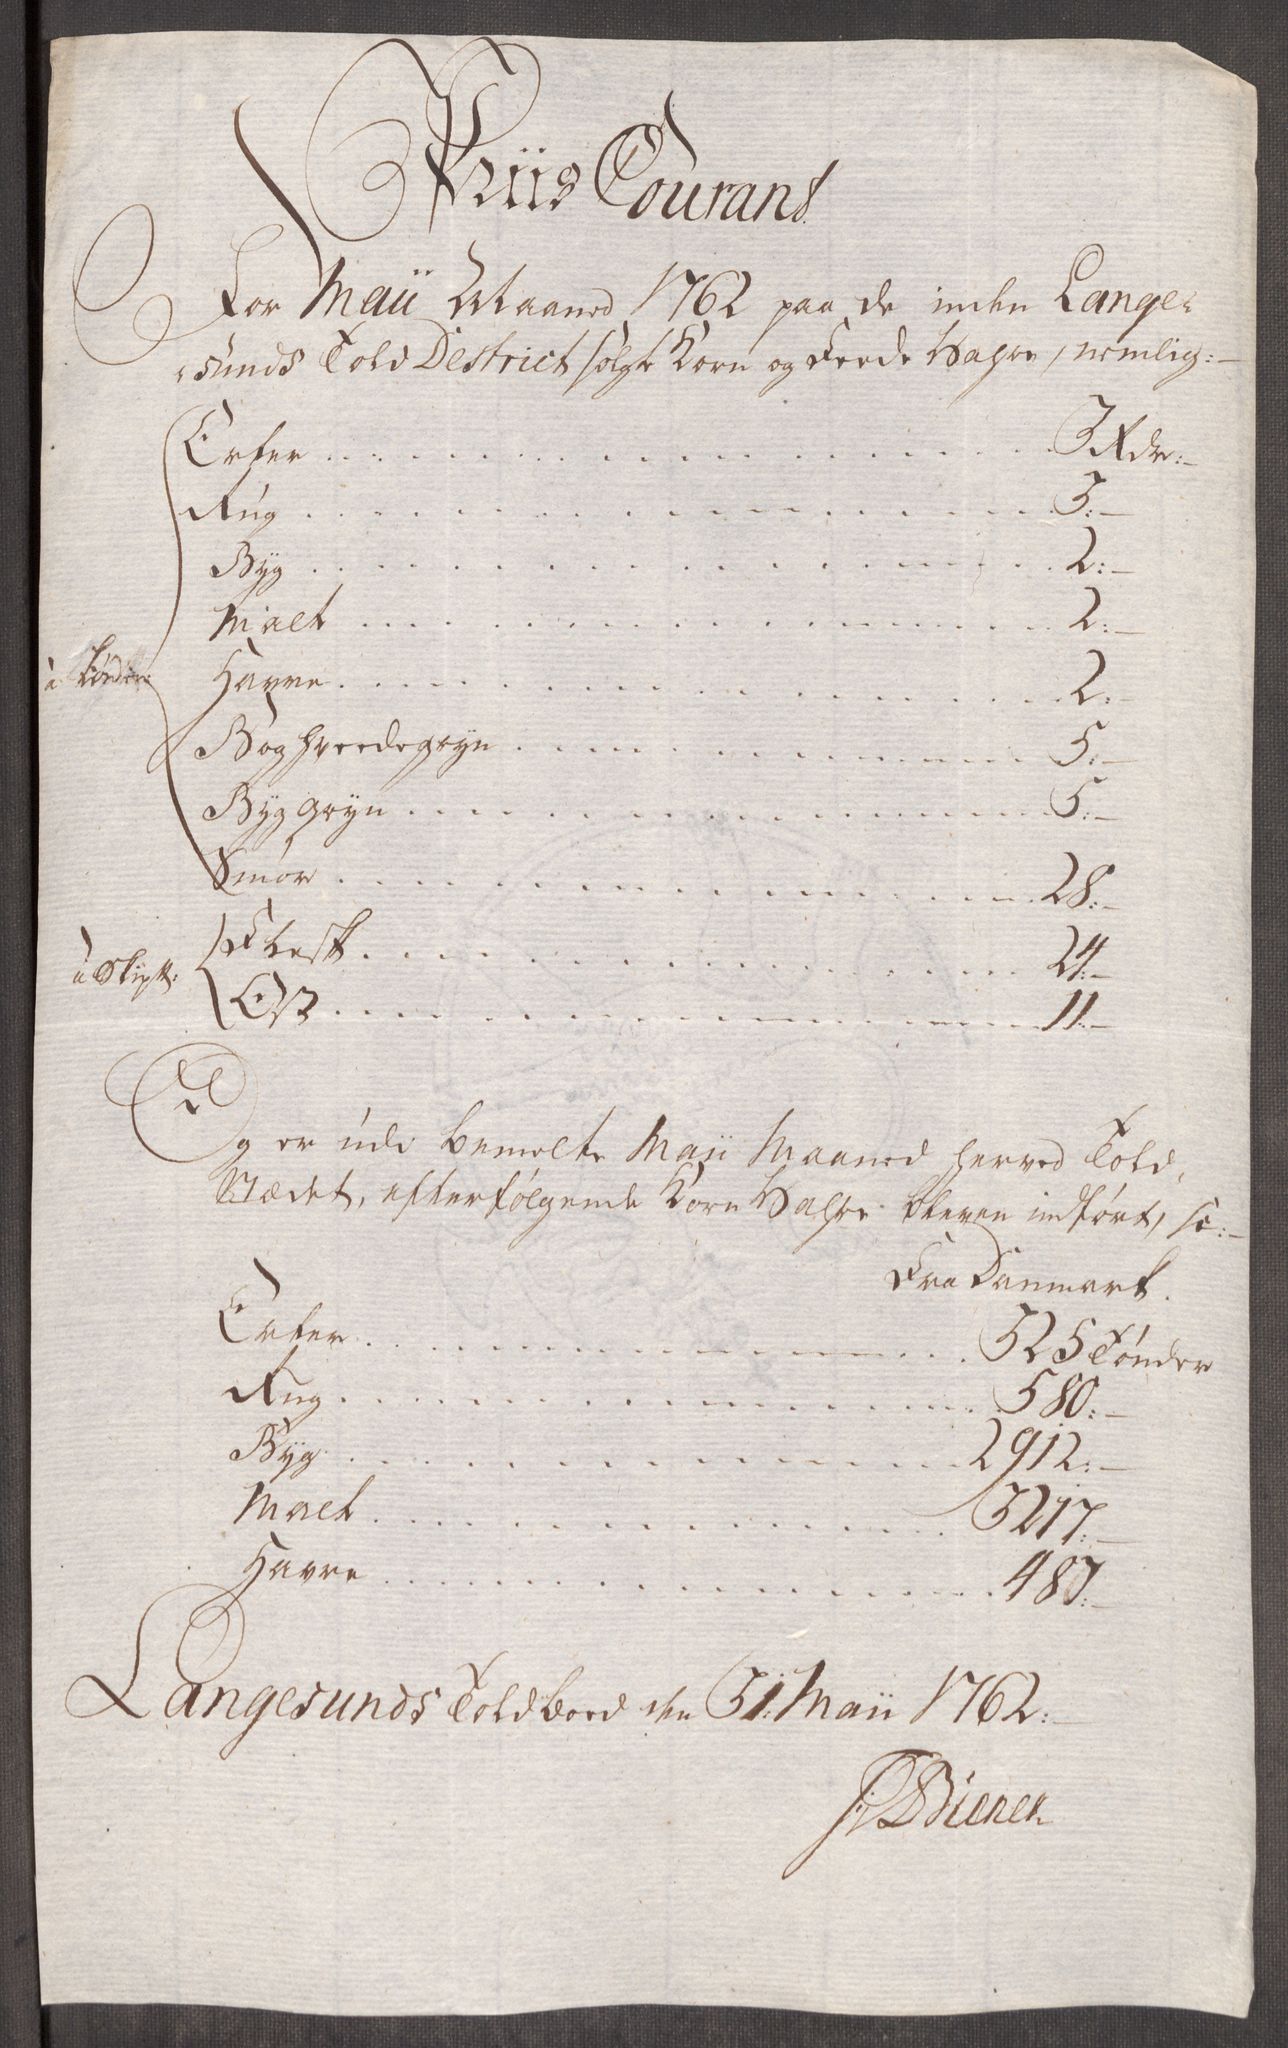 Priis Courant
For Maii Maaned 1762 paa de inden Lange-
sunds Told District solgte Korn og Feede Vahre, nemlig:
Erter 3 Rdr:
Rug 3:
Byg 2:
Malt 2:
à Tønde:
Havre 2:
Boghveedegryn 5:
Byggryn 5:
Smør 28:
à Skip℔:
Flesk 24:
Ost 11:
Og er udi bemelte Maii Maaned herved Told-
Stædet, efterfølgende Korn Vahre bleven indført, se:
Fra Danmark.
Erter 325 Tønder
Rug 580:
Byg 2912:
Malt 3217:
Havre 487:
Langesunds Toldboed den 31: Maii 1762: